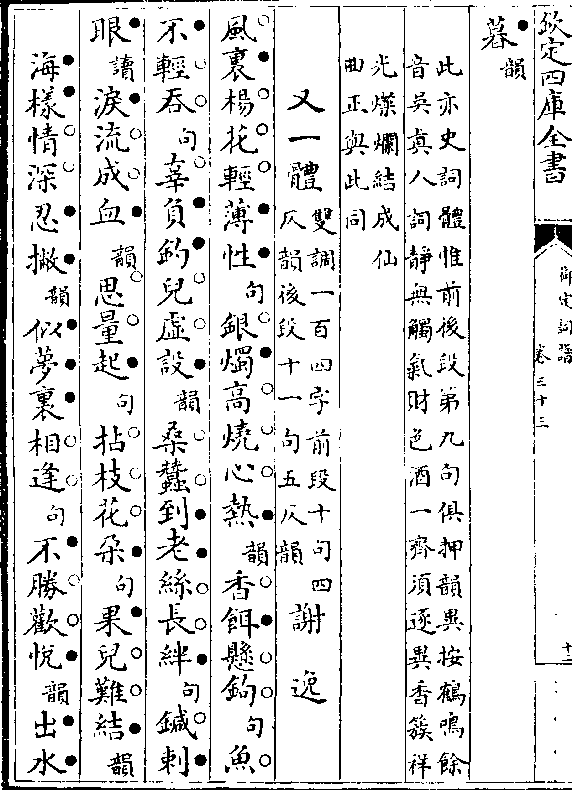 欽定四庫全書
御定詞譜
卷三十三
十二
暮韻
此亦史詞體惟前後段第九句俱押韻異按鶴鳴餘
音吳真人詞靜無觸氣財色酒一齊須逐異香簇祥
光燦爛結成仙
曲正與此同
又一體雙調一百四字前段十句四
仄韻後段十一句五仄韻謝逸
風裏楊花輕薄性句銀燭高燒心熱韻香餌懸鉤句魚
不輕吞句辜負釣兒虛設韻桑蠶到老絲長絆句鍼刺
眼讀淚流成血韻思量起句拈枝花朵句果兒難結韻
海樣情深忍撇韻似夢裏相逢句不勝歡悅韻出水